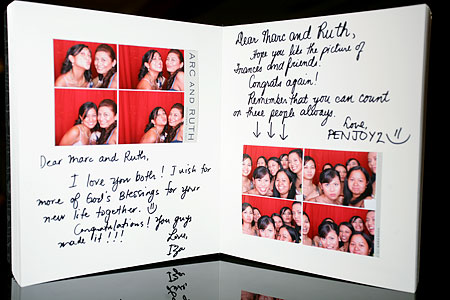 ARC AND RUTH
Dear Marc and Ruth,
I love you both! I wish for
more of God's Blessings for your
new life together.
Congratulations! You guys
made it!!!
Love,
Iza
Dear Marc and Ruth,
Hope you like the picture of
Frances and friends!
Congrats again!
Remember that you can count
on these people always.
Love,
PENJOY2